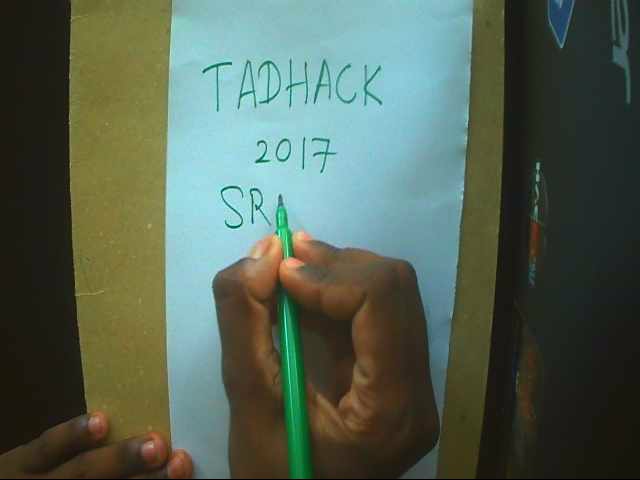 TADHACK
2017
SR